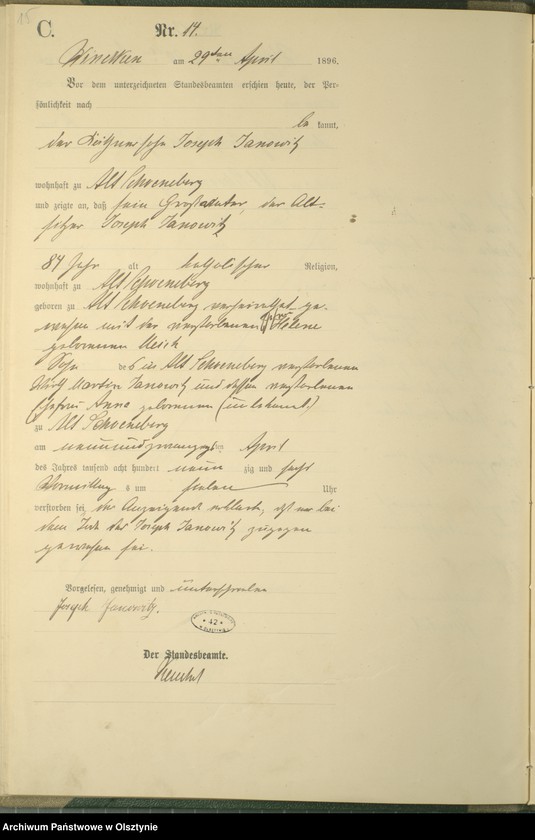 115
C.
Nr. 14.
am 29ten April 1896.
Vor dem unterzeichneten Standesbeamten erschien heute, der Per-
sönlichkeit nach
be kannt,
der Joseph Janowitz
wohnhaft zu Alt Schoeneberg
und zeigte an, daß sein Großvater, der Alt-
sitzer Joseph Janowitz
84 Jahr alt katholischer Religion,
wohnhaft zu Alt Schoeneberg
geboren zu Alt Schoeneberg verheirathet ge-
wesen mit der verstorbenen Helene
geborenen
Sohn des in Alt Schoeneberg verstorbenen
Martin Janowitz und dessen verstorbenen
Ehefrau Anna geborenen (unbekannt)
zu Alt Schoeneberg
am neunundzwanzigsten April
des Jahres tausend acht hundert neun zig und sechs
Vormittag s um sieben Uhr
verstorben sei, der Anzeigende erklärte, daß er bei
dem Tode des Joseph Janowitz zugegen
gewesen sei.
Vorgelesen, genehmigt und unterschrieben
Joseph Janowitz.
* 42 *
Der Standesbeamte.
Archiwum Państwowe w Olsztynie